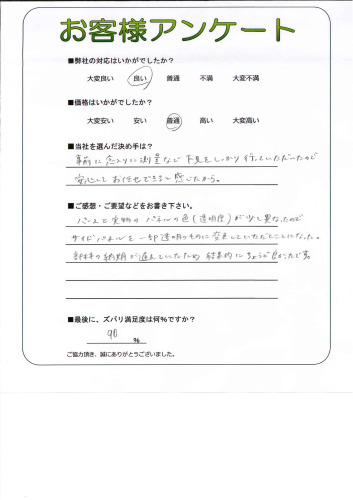 お客様アンケート
■弊社の対応はいかがでしたか？
大変良い 良い 普通 不満 大変不満
■価格はいかがでしたか？
大変安い 安い 普通 高い 大変高い
■当社を選んだ決め手は？
事前に念入りに測量など下見をしっかり行っていただいたので
安心してお任せできると感じたから。
■ご感想・ご要望などをお書き下さい。
パースと実物のパネルの色(透明度)が少し異なったので
サイドパネルを一部透明のものに変更していただくことになった。
部材の納期が遅れていたため結果的にちょうど良かったです。
■最後に、ズバリ満足度は何％ですか？
90
％
ご協力頂き、誠にありがとうございました。